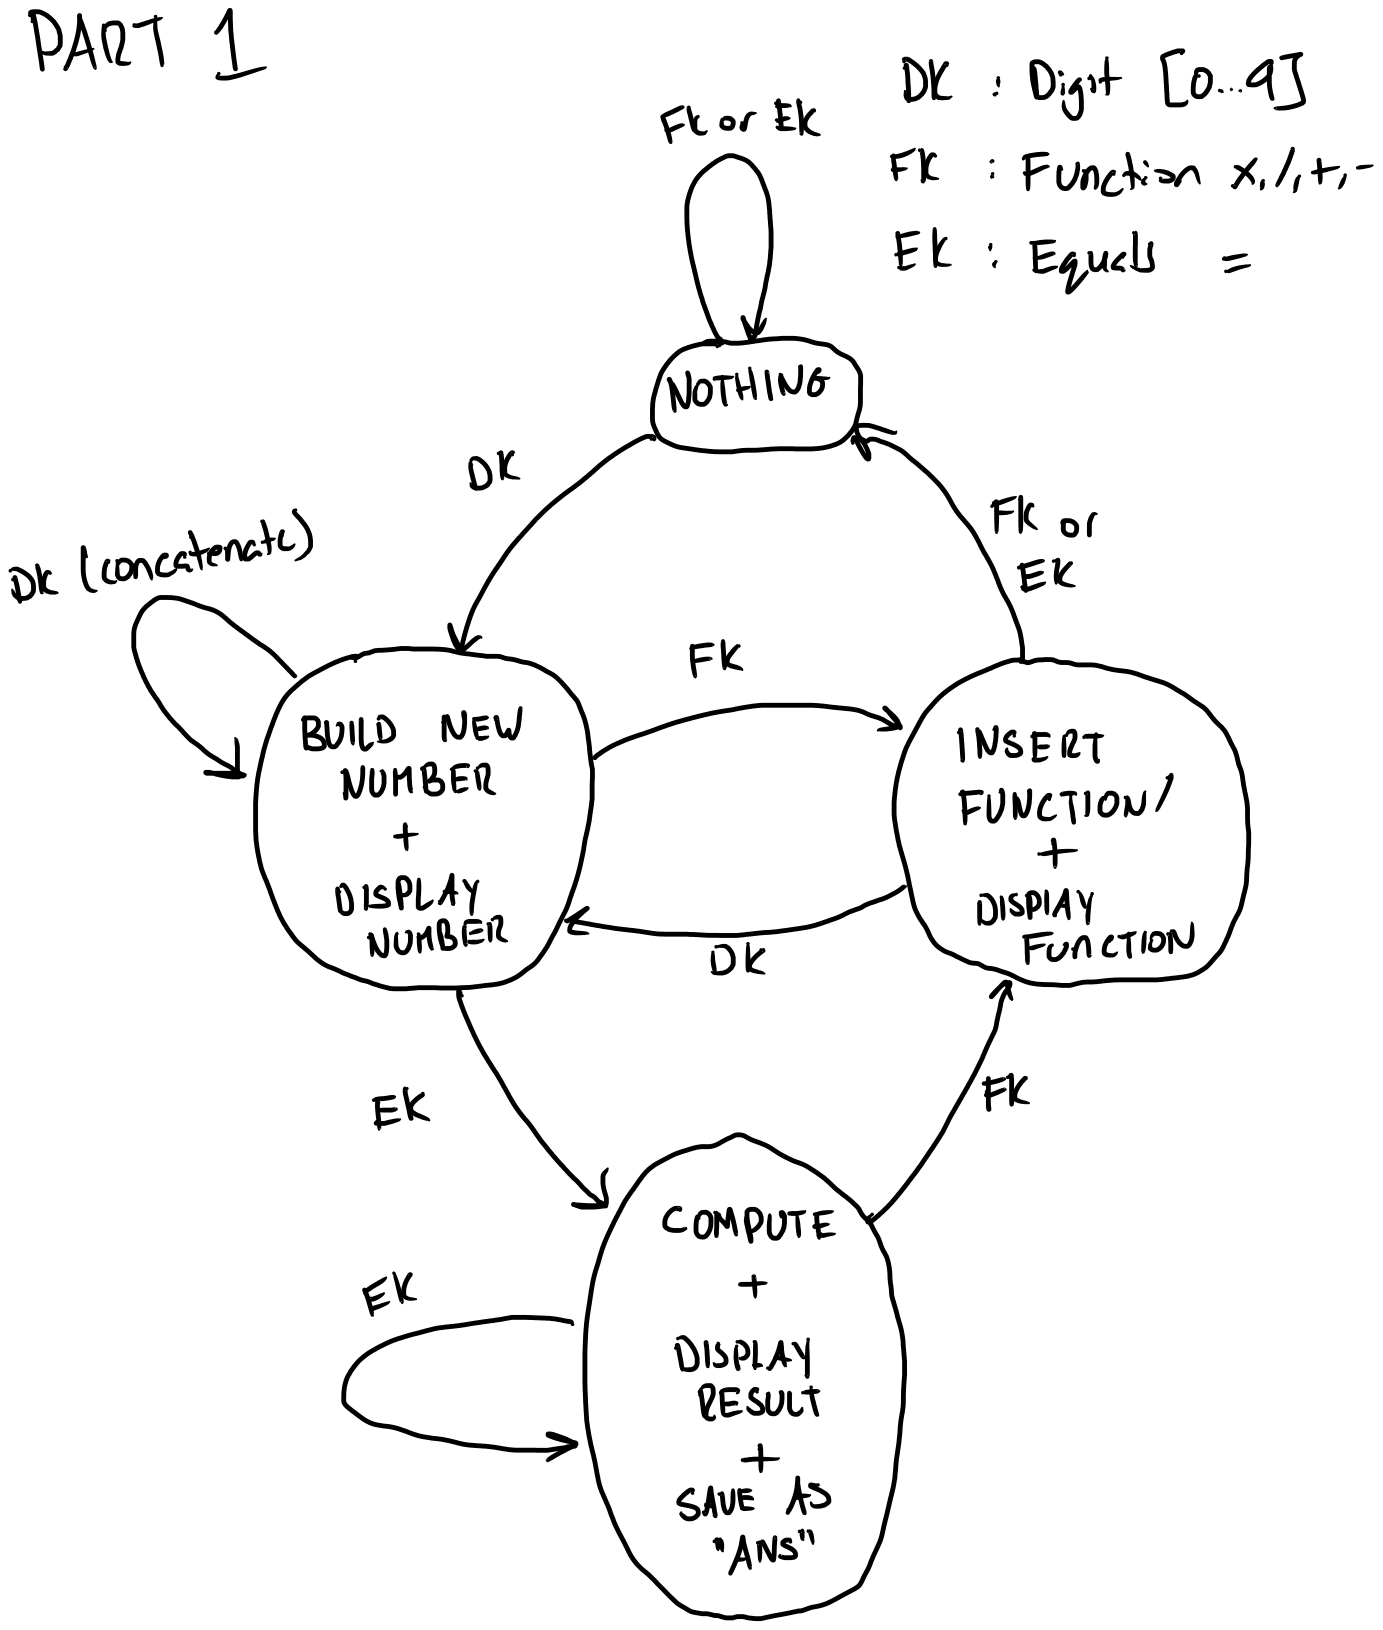 PART 1
DK : Digit [0...9]
FK : Function x,/,+,-
EK : Equals =
FK or EK
NOTHING
DK
FK or
EK
DK (concatenate)
FK
BUILD NEW
NUMBER
+
DISPLAY
NUMBER
INSERT
FUNCTION/
+
DISPLAY
FUNCTION
DK
EK
FK
COMPUTE
+
DISPLAY
RESULT
+
SAVE AS
"ANS"
EK